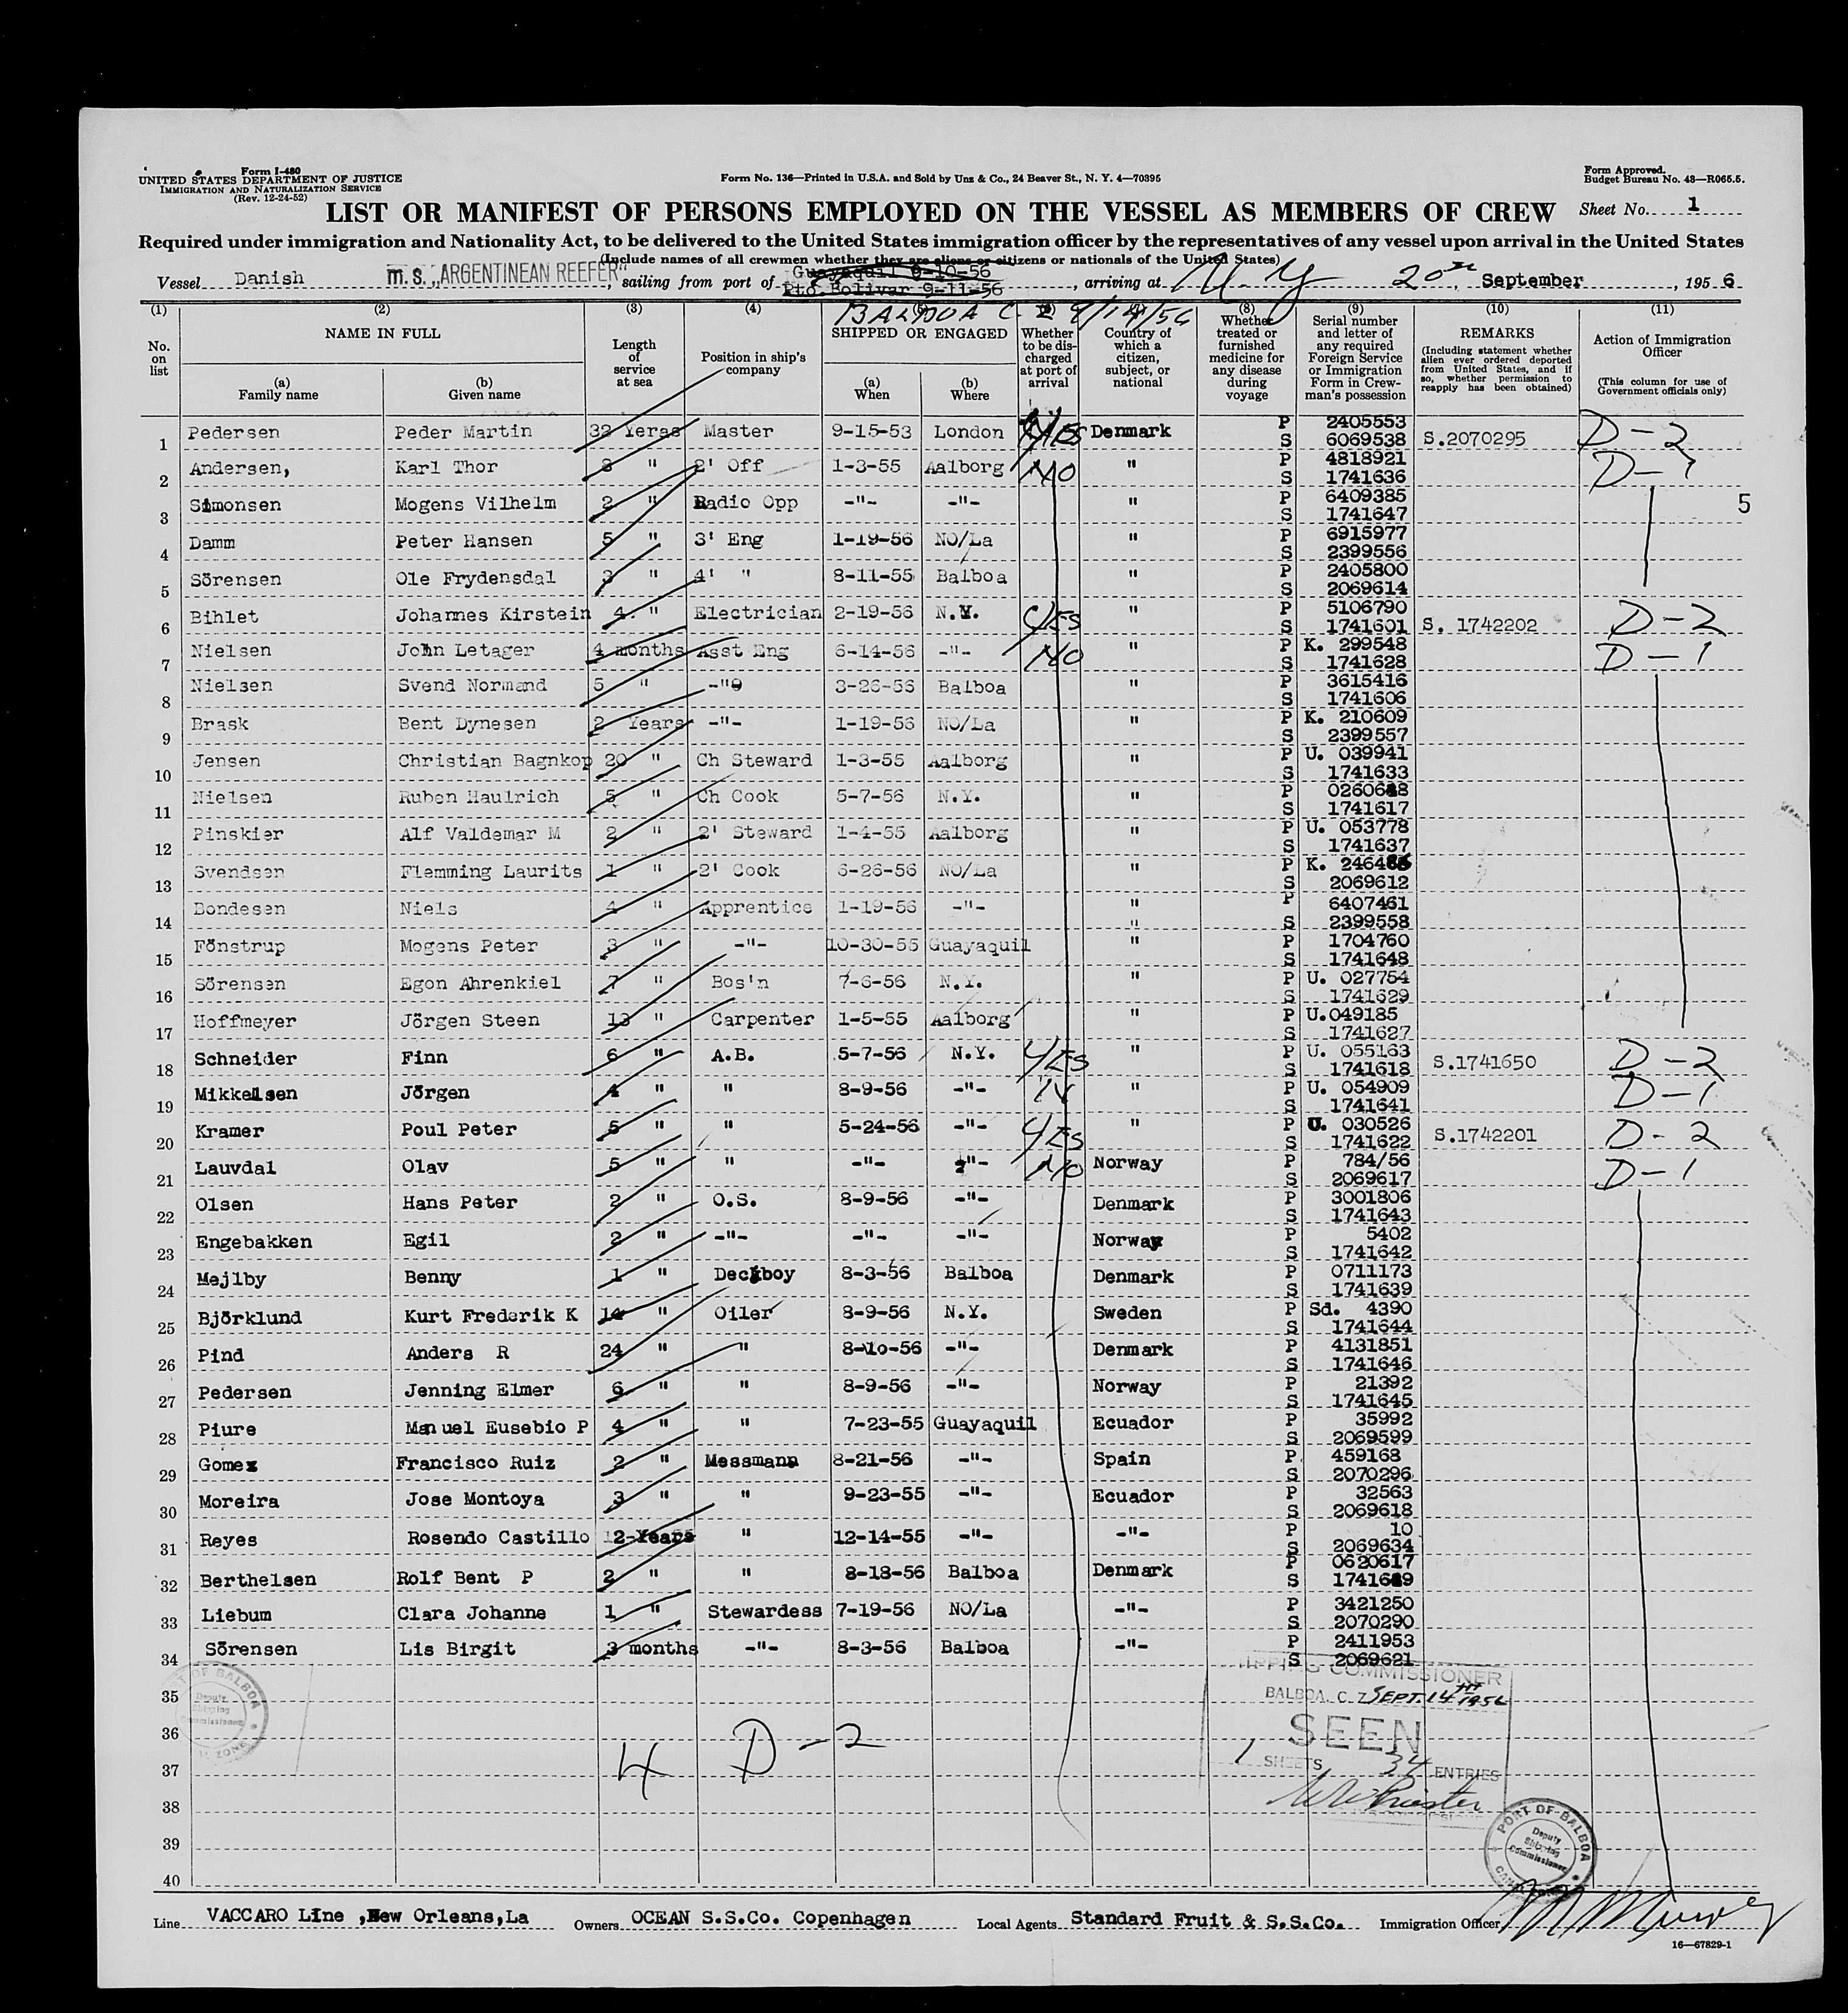 Form I-480
UNITED STATES DEPARTMENT OF JUSTICE
IMMIGRATION AND NATURALIZATION SERVICE
(Rev. 12-24-52)
Form No. 136—Printed in U.S.A. and Sold by Unz & Co., 24 Beaver St., N. Y. 4—70395
Form Approved.
Budget Bureau No. 43—R065.5.
LIST OR MANIFEST OF PERSONS EMPLOYED ON THE VESSEL AS MEMBERS OF CREW Sheet No. 1
Required under immigration and Nationality Act, to be delivered to the United States immigration officer by the representatives of any vessel upon arrival in the United States
(Include names of all crewmen whether they are aliens or citizens or nationals of the United States)
Vessel Danish m.s. „ARGENTINEAN REEFER", sailing from port of Guayaquil 9-10-56 Pto. Bolivar 9-11-56, arriving at N.Y 20th September, 1956
BALBOA C Z 9/14/56
(1) (2) (3) (4) (5) (6) (7) (8) (9) (10) (11)
No. on list
NAME IN FULL
(a) Family name
(b) Given name
Length of service at sea
Position in ship's company
SHIPPED OR ENGAGED
(a) When
(b) Where
Whether to be discharged at port of arrival
Country of which a citizen, subject, or national
Whether treated or furnished medicine for any disease during voyage
Serial number and letter of any required Foreign Service or Immigration Form in Crewman's possession
REMARKS
(Including statement whether alien ever ordered deported from United States, and if so, whether permission to reapply has been obtained)
Action of Immigration Officer
(This column for use of Government officials only)
1 Pedersen Peder Martin 32 Yeras Master 9-15-53 London YES Denmark P 2405553 S 6069538 S.2070295 D-2
2 Andersen, Karl Thor 3 " 2' Off 1-3-55 Aalborg NO " P 4818921 S 1741636 D-1
3 Simonsen Mogens Vilhelm 2 " Radio Opp -"- -"- " P 6409385 S 1741647
5
4 Damm Peter Hansen 5 " 3' Eng 1-19-56 NO/La " P 6915977 S 2399556
5 Sörensen Ole Frydensdal 3 " 4' " 8-11-55 Balboa " P 2405800 S 2069614
6 Bihlet Johannes Kirstein 4. " Electrician 2-19-56 N.Y. YES " P 5106790 S 1741601 S. 1742202 D-2
7 Nielsen John Letager 4 months Asst Eng 6-14-56 -"- NO " P K. 299548 S 1741628 D-1
8 Nielsen Svend Normand 5 " -"- 3-26-56 Balboa " P 3615416 S 1741606
9 Brask Bent Dynesen 2 Years -"- 1-19-56 NO/La " P K. 210609 S 2399557
10 Jensen Christian Bagnkop 20 " Ch Steward 1-3-55 Aalborg " P U. 039941 S 1741633
11 Nielsen Ruben Haulrich 5 " Ch Cook 5-7-56 N.Y. " P S 1741617
12 Pinskier Alf Valdemar M 2 " 2' Steward 1-4-55 Aalborg " P U. 053778 S 1741637
13 Svendsen Flemming Laurits 1 " 2' Cook 6-26-56 NO/La " P K. S 2069612
14 Bondesen Niels 4 " Apprentice 1-19-56 -"- " P 6407461 " S 2399558
15 Fönstrup Mogens Peter 3 " -"- 10-30-55 Guayaquil " P 1704760 S 1741648
16 Sörensen Egon Ahrenkiel 7 " Bos'n 7-6-56 N.Y. " P U. 027754 S 1741629
17 Hoffmeyer Jörgen Steen 13 " Carpenter 1-5-55 Aalborg " P U.049185 S 1741627
18 Schneider Finn 6 " A.B. 5-7-56 N.Y. YES " P U. 055163 S 1741618 S.1741650 D-2
19 Mikkelsen Jörgen 4 " " 8-9-56 -"- N " P U. 054909 S 1741641 D-1
20 Kramer Poul Peter 5 " " 5-24-56 -"- YES " P U. 030526 S 1741622 S.1742201 D-2
21 Lauvdal Olav 5 " " -"- -"- NO Norway P 784/56 S 2069617 D-1
22 Olsen Hans Peter 2 " O.S. 8-9-56 -"- Denmark P 3001806 S 1741643
23 Engebakken Egil 2 " -"- -"- -"- Norway P 5402 S 1741642
24 Mejlby Benny 1 " Deckboy 8-3-56 Balboa Denmark P 0711173 S 1741639
25 Björklund Kurt Frederik K 14 " Oiler 8-9-56 N.Y. Sweden P Sd. 4390 S 1741644
26 Pind Anders R 24 " " 8-10-56 -"- Denmark P 4131851 S 1741646
27 Pedersen Jenning Elmer 6 " " 8-9-56 -"- Norway P 21392 S 1741645
28 Piure Manuel Eusebio P 4 " " 7-23-55 Guayaquil Ecuador P 35992 S 2069599
29 Gomez Francisco Ruiz 2 " Messmann 8-21-56 -"- Spain P 459168 S 2070296
30 Moreira Jose Montoya 3 " " 9-23-55 -"- Ecuador P 32563 S 2069618
31 Reyes Rosendo Castillo 2 Years " 12-14-55 -"- -"- P 10 S 2069634
32 Berthelsen Rolf Bent P 2 " " 8-18-56 Balboa Denmark P 0620617 S
33 Liebum Clara Johanne 1 " Stewardess 7-19-56 NO/La -"- P 3421250 S 2070290
34 Sörensen Lis Birgit 3 months -"- 8-3-56 Balboa -"- P 2411953 S 2069621
35
36
37
38
39
40
4 D-2
SHIPPING COMMISSIONER
BALBOA, C Z SEPT. 14TH 1956
SEEN
1 SHEETS 34 ENTRIES
PORT OF BALBOA
Deputy
Shipping
Commissioner
Line VACCARO Line ,New Orleans,La Owners OCEAN S.S.Co. Copenhagen Local Agents Standard Fruit & S.S.Co. Immigration Officer
16—67829-1